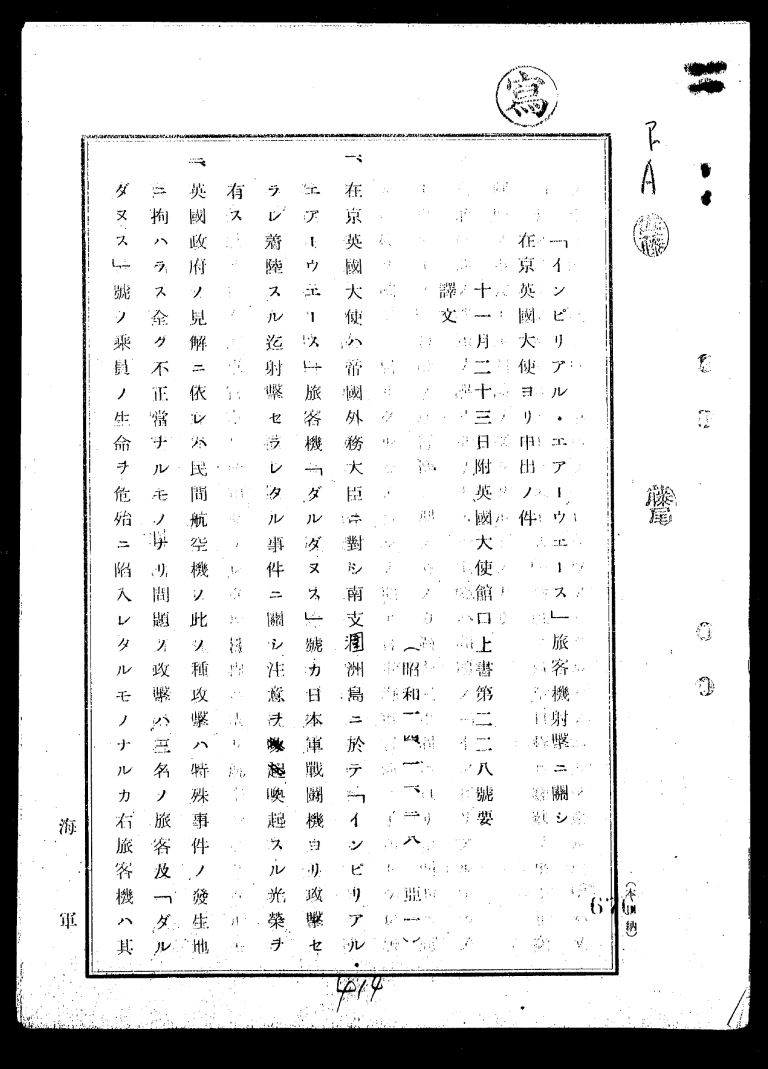 寫
下
A
藤尾
「インピリアル・エアーウエース」旅客機射擊ニ關シ
在京英國大使ヨリ申出ノ件
十一月二十三日附英國大使館口上書第二二八號要
譯文
(昭和一四、一一、二八 亞一)
一、在京英國大使ハ帝國外務大臣ニ對シ南支潿洲島ニ於テ「インピリアル・
エアーウエース」旅客機「ダルダヌス」號カ日本軍戰鬪機ヨリ攻擊セ
ラレ着陸スル迄射擊セラレタル事件ニ關シ注意ヲ喚起スル光榮ヲ
有ス
二、英國政府ノ見解ニ依レハ民間航空機ノ此ノ種攻擊ハ特殊事件ノ發生地
ニ拘ハラス全ク不正當ナルモノナリ問題ノ攻擊ハ三名ノ旅客及「ダル
ダヌス」號ノ乘員ノ生命ヲ危殆ニ陷入レタルモノナルカ右旅客機ハ其
海軍
414